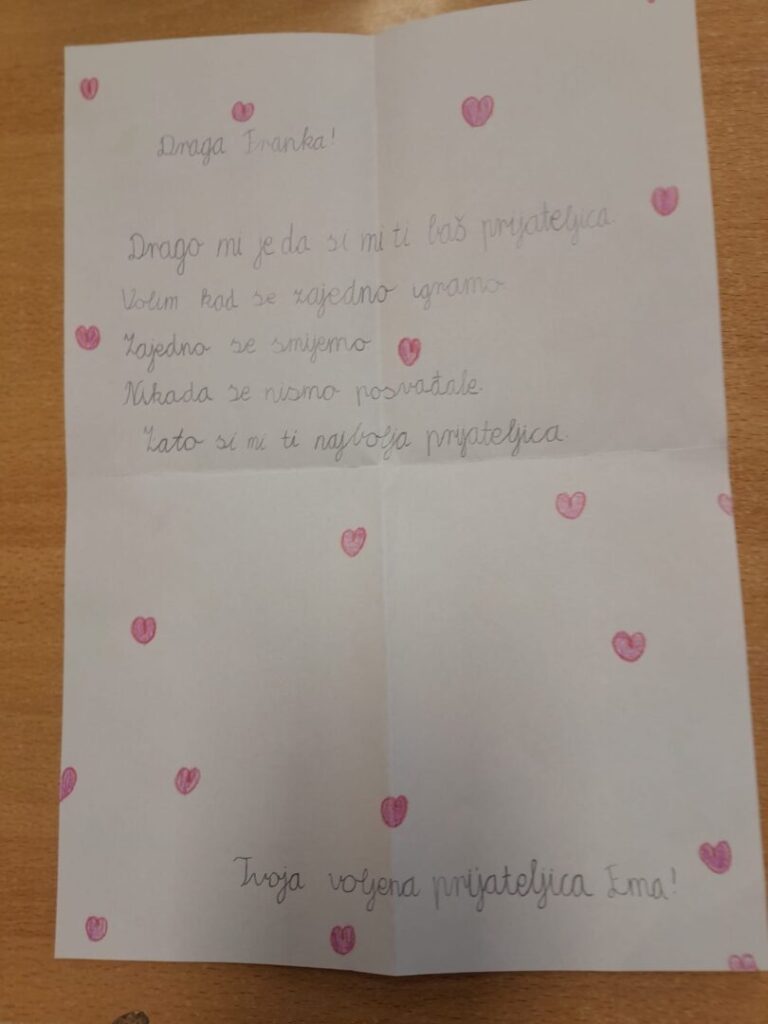 Draga Franka!
Drago mi je da si mi ti baš prijateljica.
Volim kad se zajedno igramo.
Zajedno se smijemo
Nikada se nismo posvađale.
Zato si mi ti najbolja prijateljica.
Tvoja voljena prijateljica Ema!